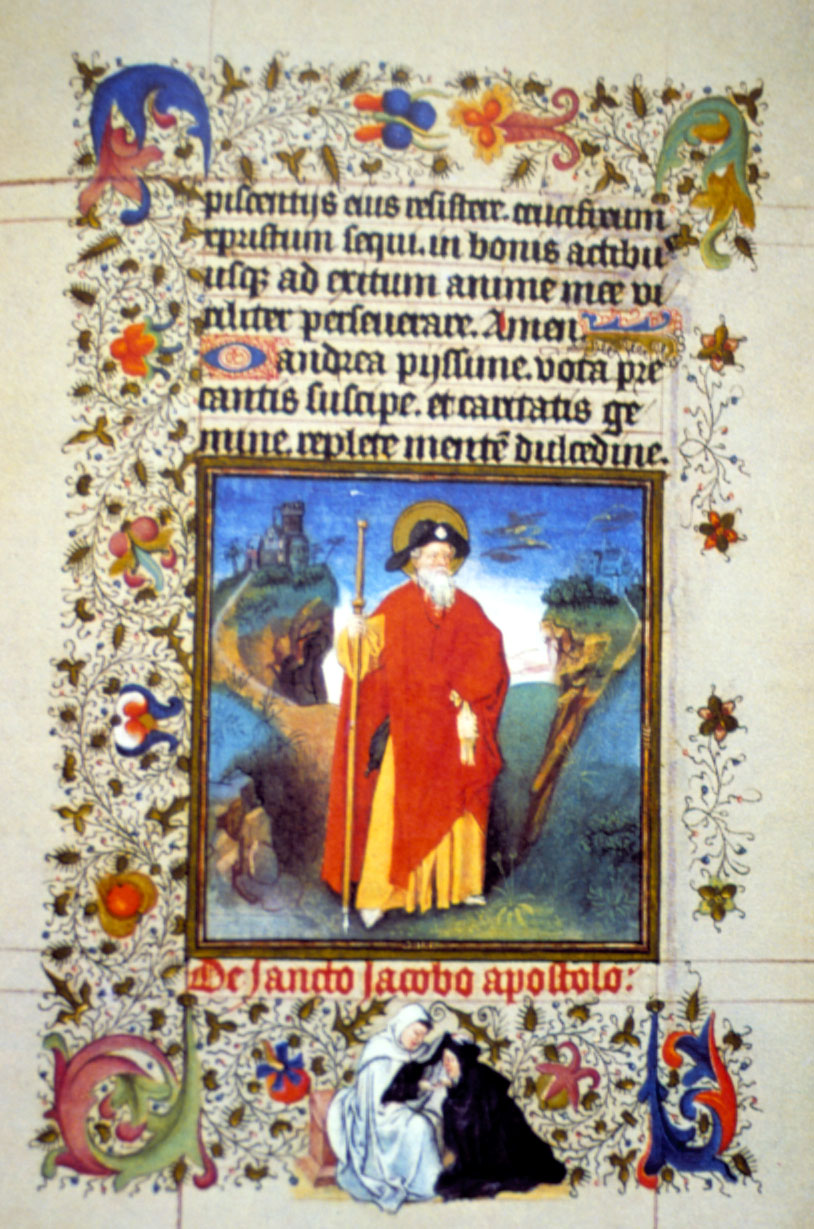 piscentijs eius resistere. crucifixum
cpristum sequi. in bonis actibu
usq; ad exitum anime mee vi
riliter perseuerare. Amen
O andrea pijssime. vota pre
cantis suscipe. et caritatis ge
mine. replete mentē dulcedine.
De sancto Jacobo apostolo: